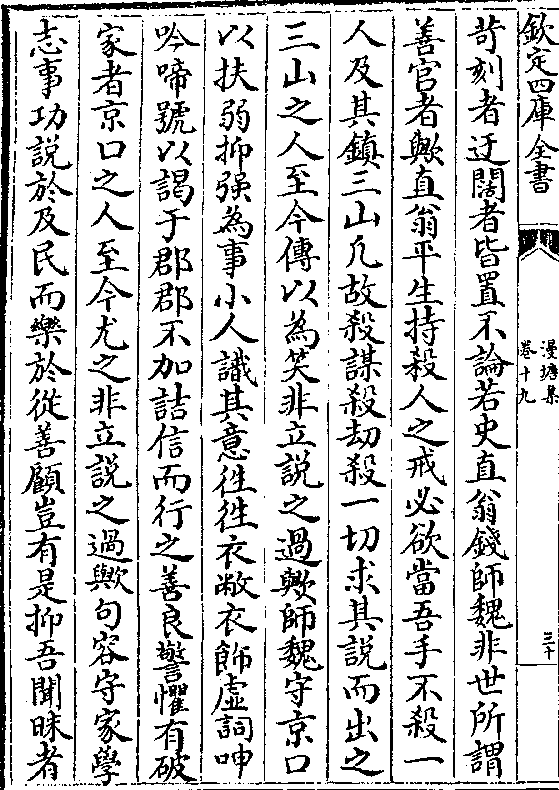 欽定四庫全書
漫塘集
卷十九
三十
苛刻者迂闊者皆置不論若史直翁錢師魏非世所謂
善官者歟直翁平生持殺人之戒必欲當吾手不殺一
人及其鎮三山凡故殺謀殺劫殺一切求其説而出之
三山之人至今傳以為笑非立説之過歟師魏守京口
以扶弱抑强為事小人識其意徃徃衣敝衣飾虛詞呻
吟啼號以謁于郡郡不加詰信而行之善良讋懼有破
家者京口之人至今尤之非立説之過歟句容守家學
志事功説於及民而樂於從善顧豈有是抑吾聞昧者